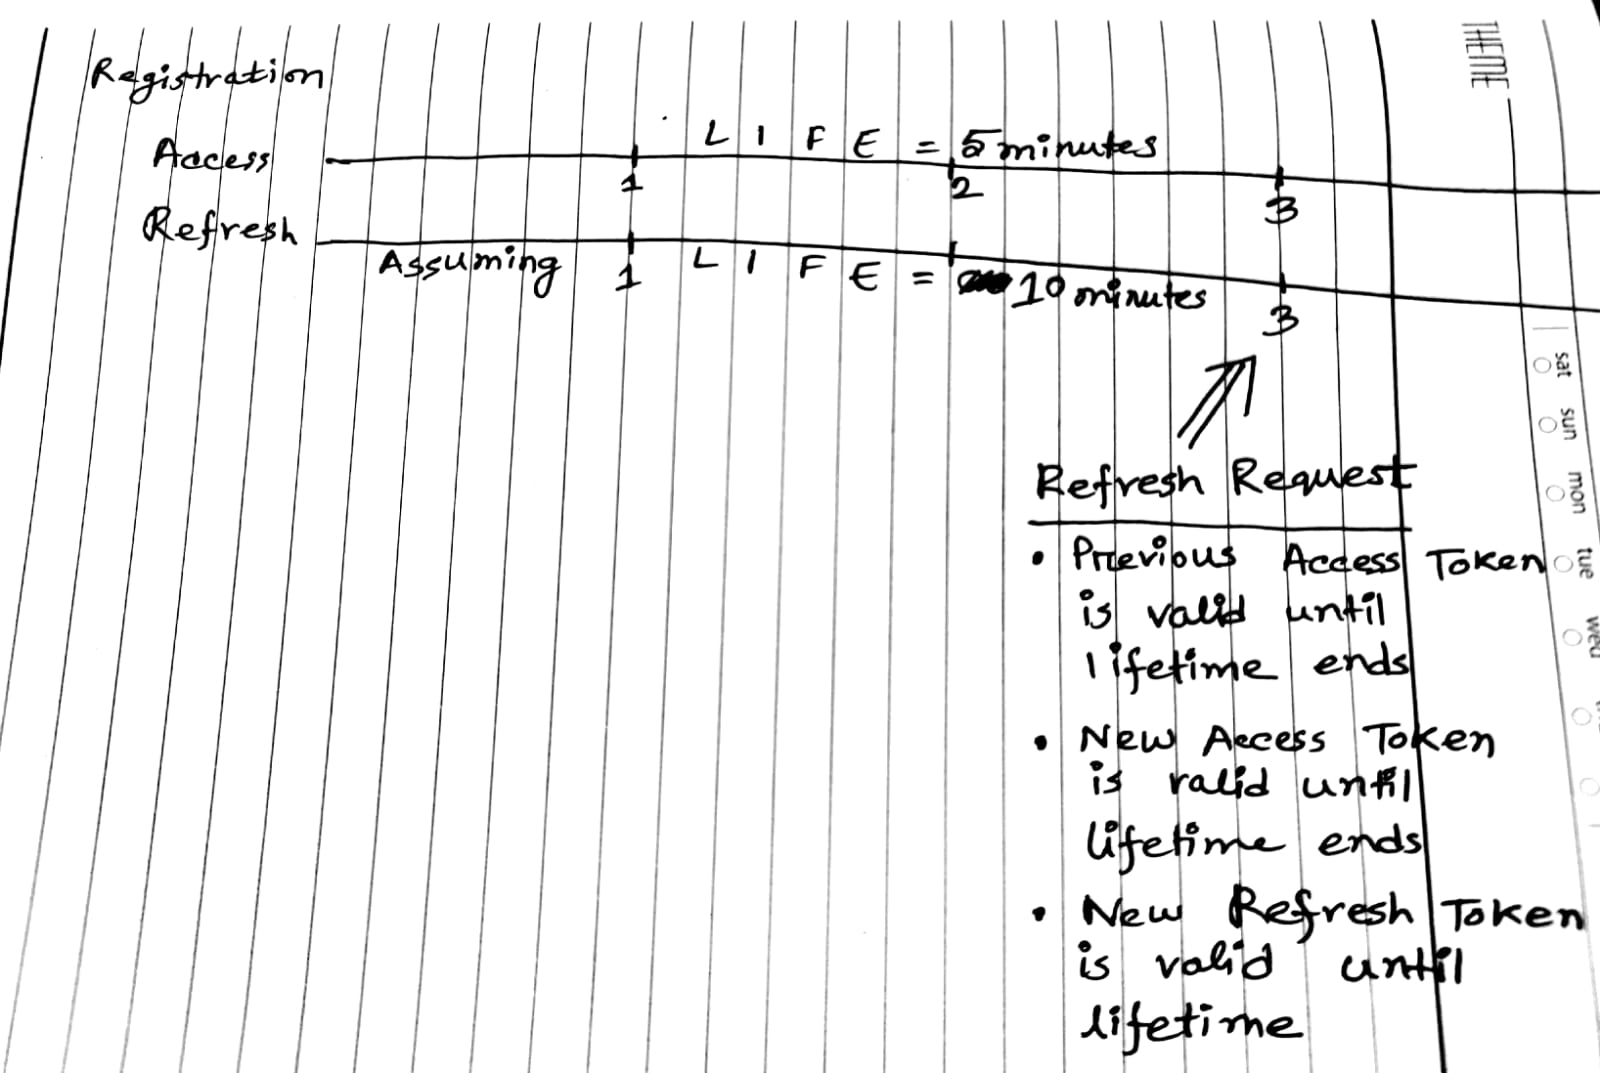 THEME
Registration
Access
L I F E = 5 minutes
1 2 3
Refresh
Assuming
1 L I F E = 10 minutes
3
Refresh Request
• Previous Access Token
is valid until
lifetime ends
• New Access Token
is valid until
lifetime ends
• New Refresh Token
is valid until
lifetime
sat
sun
mon
tue
wed